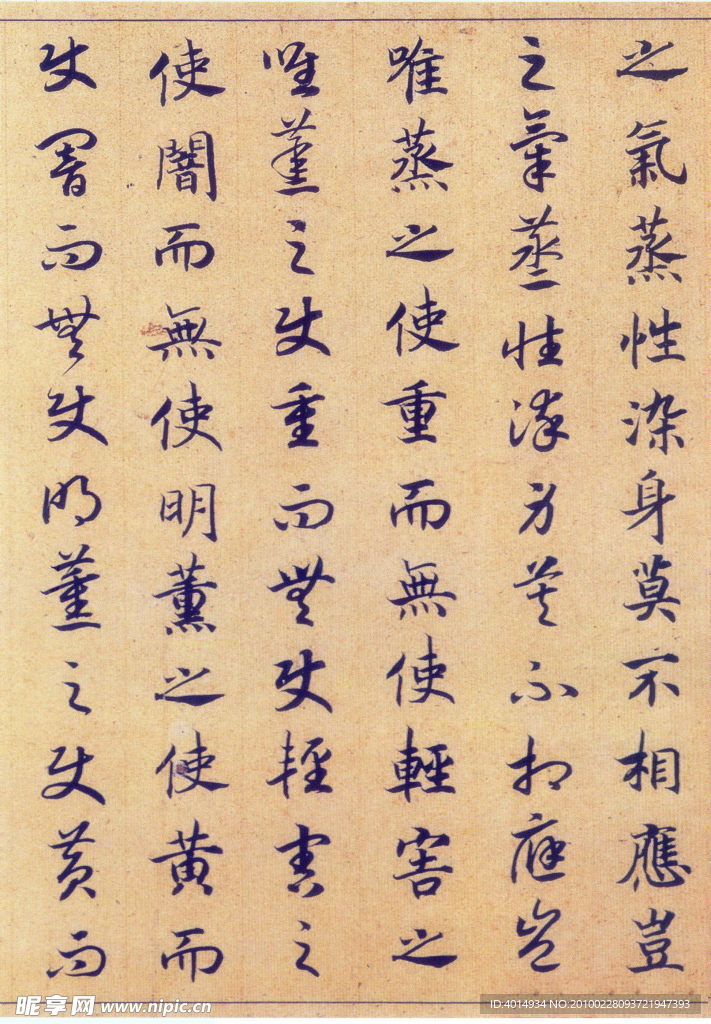 之氣蒸性染身莫不相應豈
之氣蒸性染身莫不相應豈
唯蒸之使重而無使輕害之
唯蒸之使重而無使輕害之
使闇而無使明薰之使黃而
使闇而無使明薰之使黃而
昵享网 www.nipic.cn
ID:4014934 NO:20100228093721947393